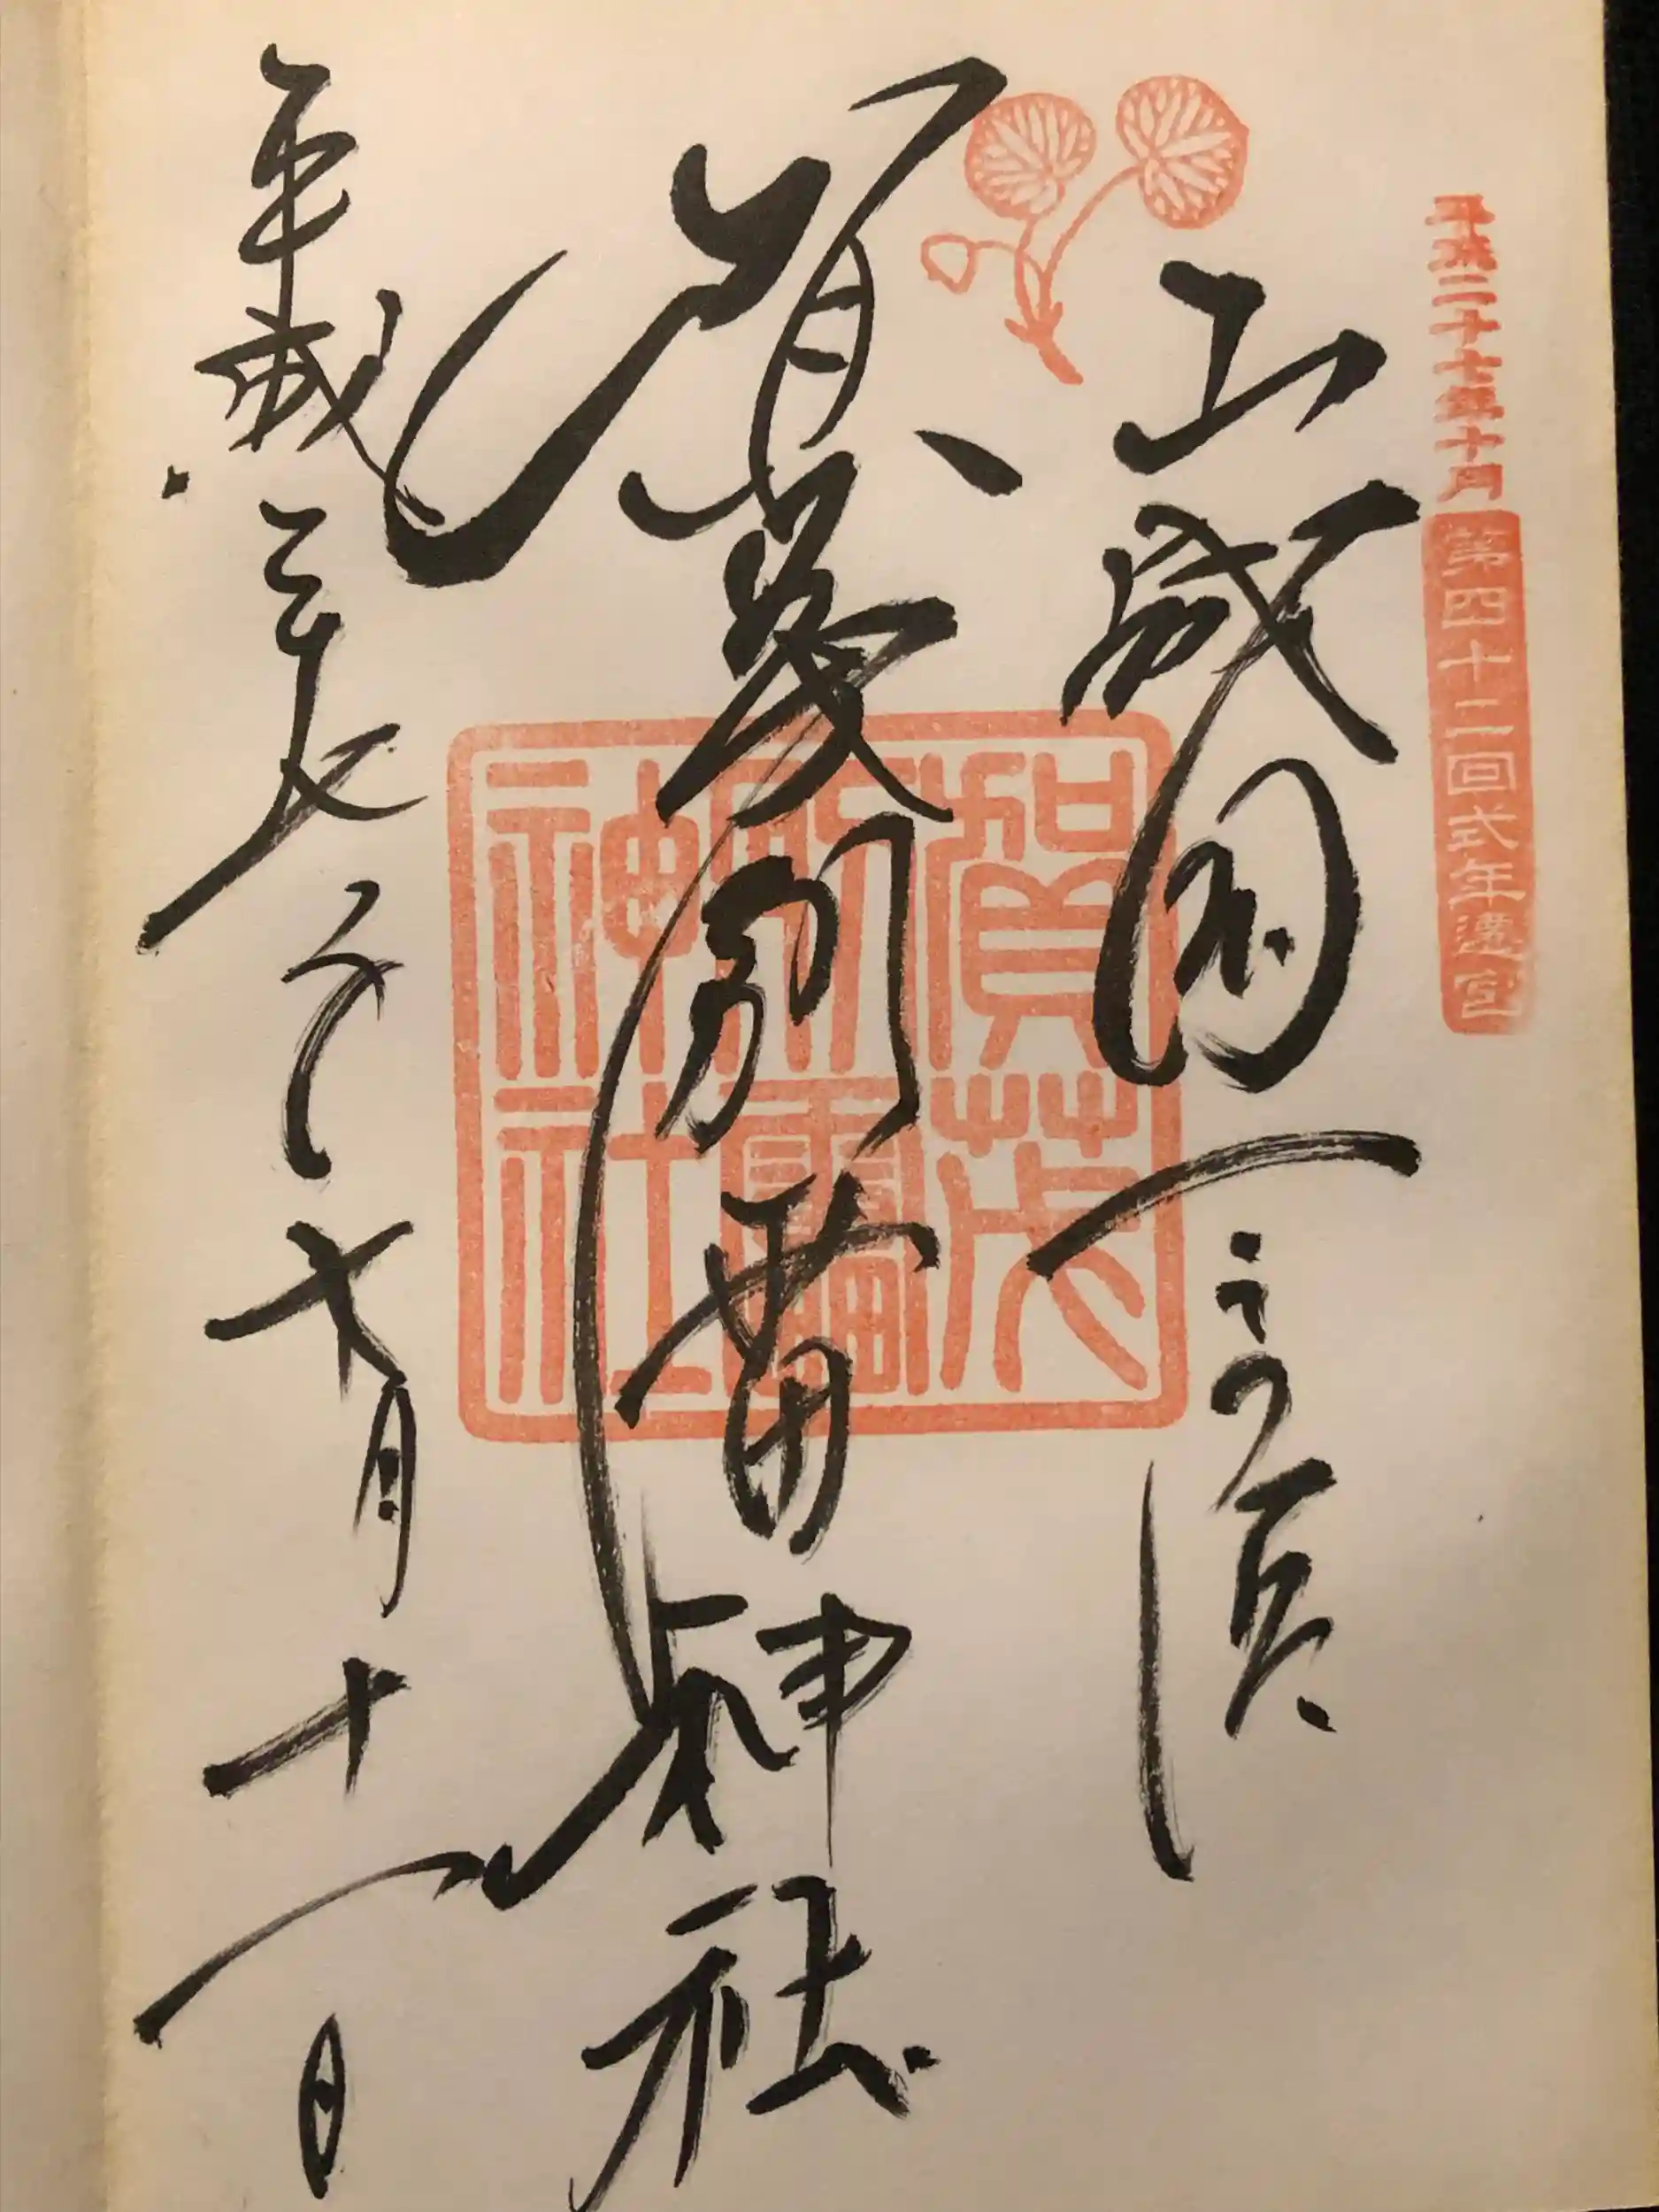 平成二十七年十月
第四十二回式年遷宮
山城国一之宮
賀茂別雷神社
平成二十七年七月十一日
賀茂
別雷
神社